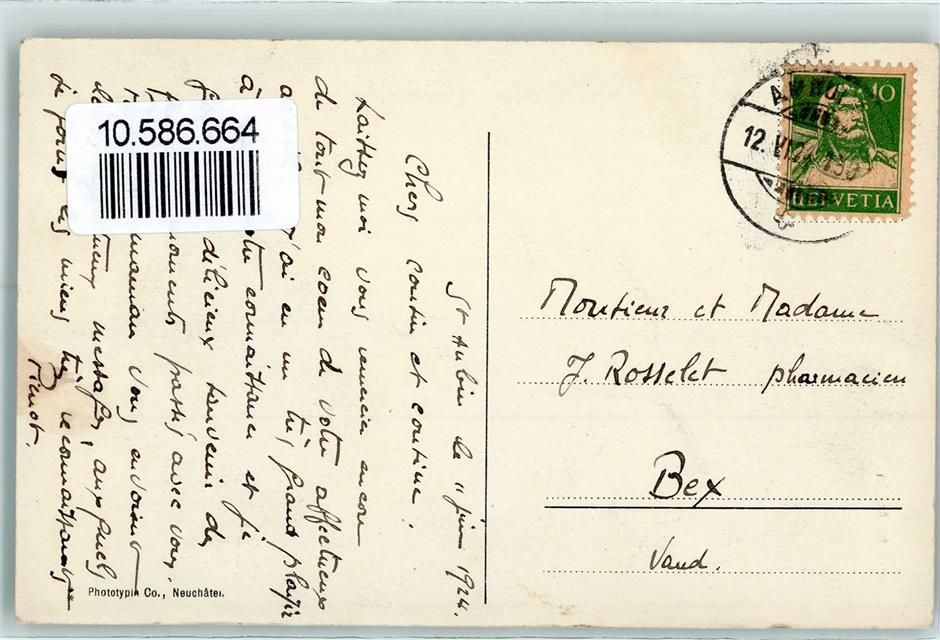 10.586.664
St Aubin le 11 juin 1924.
Chers cousin et cousine.
Laissez moi vous remercier encore
de tout mon coeur de votre affectueux
j'ai eu un très grand plaisir
à votre connaissance et je
délicieux souvenir des
moments passés avec vous.
maman vous envoient
messages, auxquels
je joins les miens très reconnaissants
Pierrot.
Phototypie Co., Neuchâtel.
12. VI 24
10
HELVETIA
Monsieur et Madame
J. Rosselet pharmacien
Bex
Vaud.